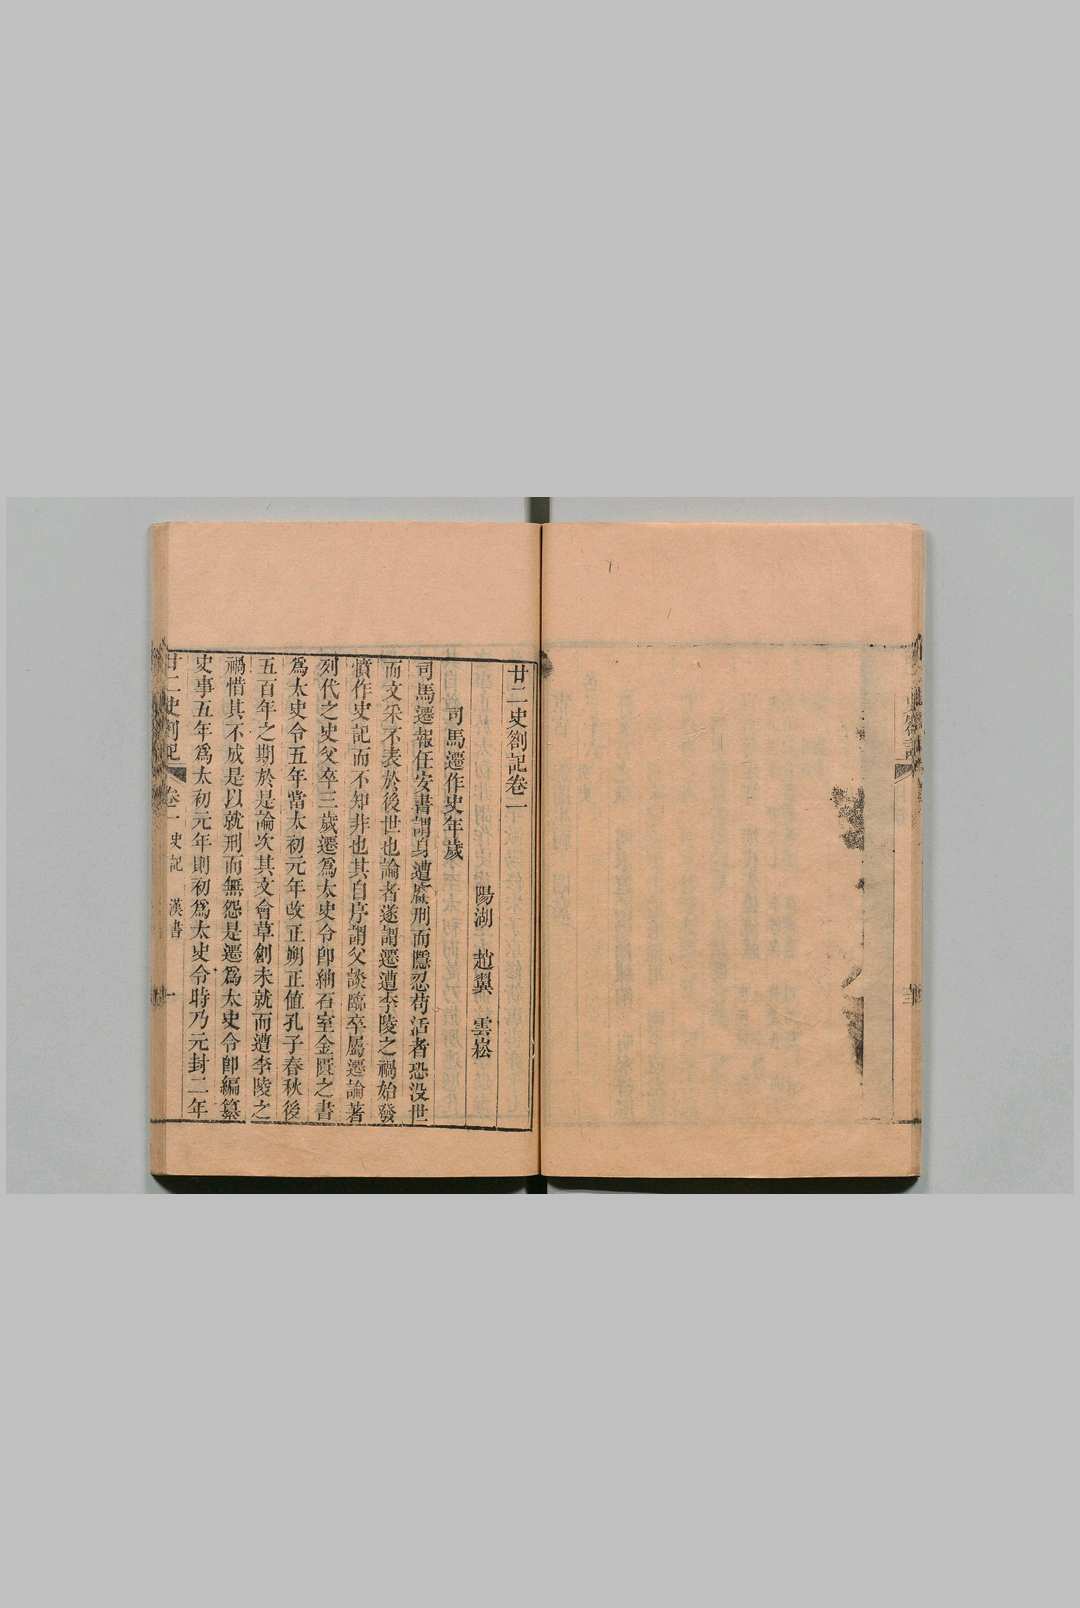 廿二史劄記卷一
陽湖 趙翼 雲崧
司馬遷作史年歲
司馬遷報任安書謂身遭腐刑而隱忍苟活者恐沒世
而文采不表於後世也論者遂謂遷遭李陵之禍始發
憤作史記而不知非也其自序謂父談臨卒屬遷論著
列代之史父卒三歲遷爲太史令卽紬石室金匱之書
爲太史令五年當太初元年改正朔正值孔子春秋後
五百年之期於是論次其文會草創未就而遭李陵之
禍惜其不成是以就刑而無怨是遷爲太史令卽編纂
史事五年爲太初元年則初爲太史令時乃元封二年
廿二史劄記 卷一 史記 漢書 一